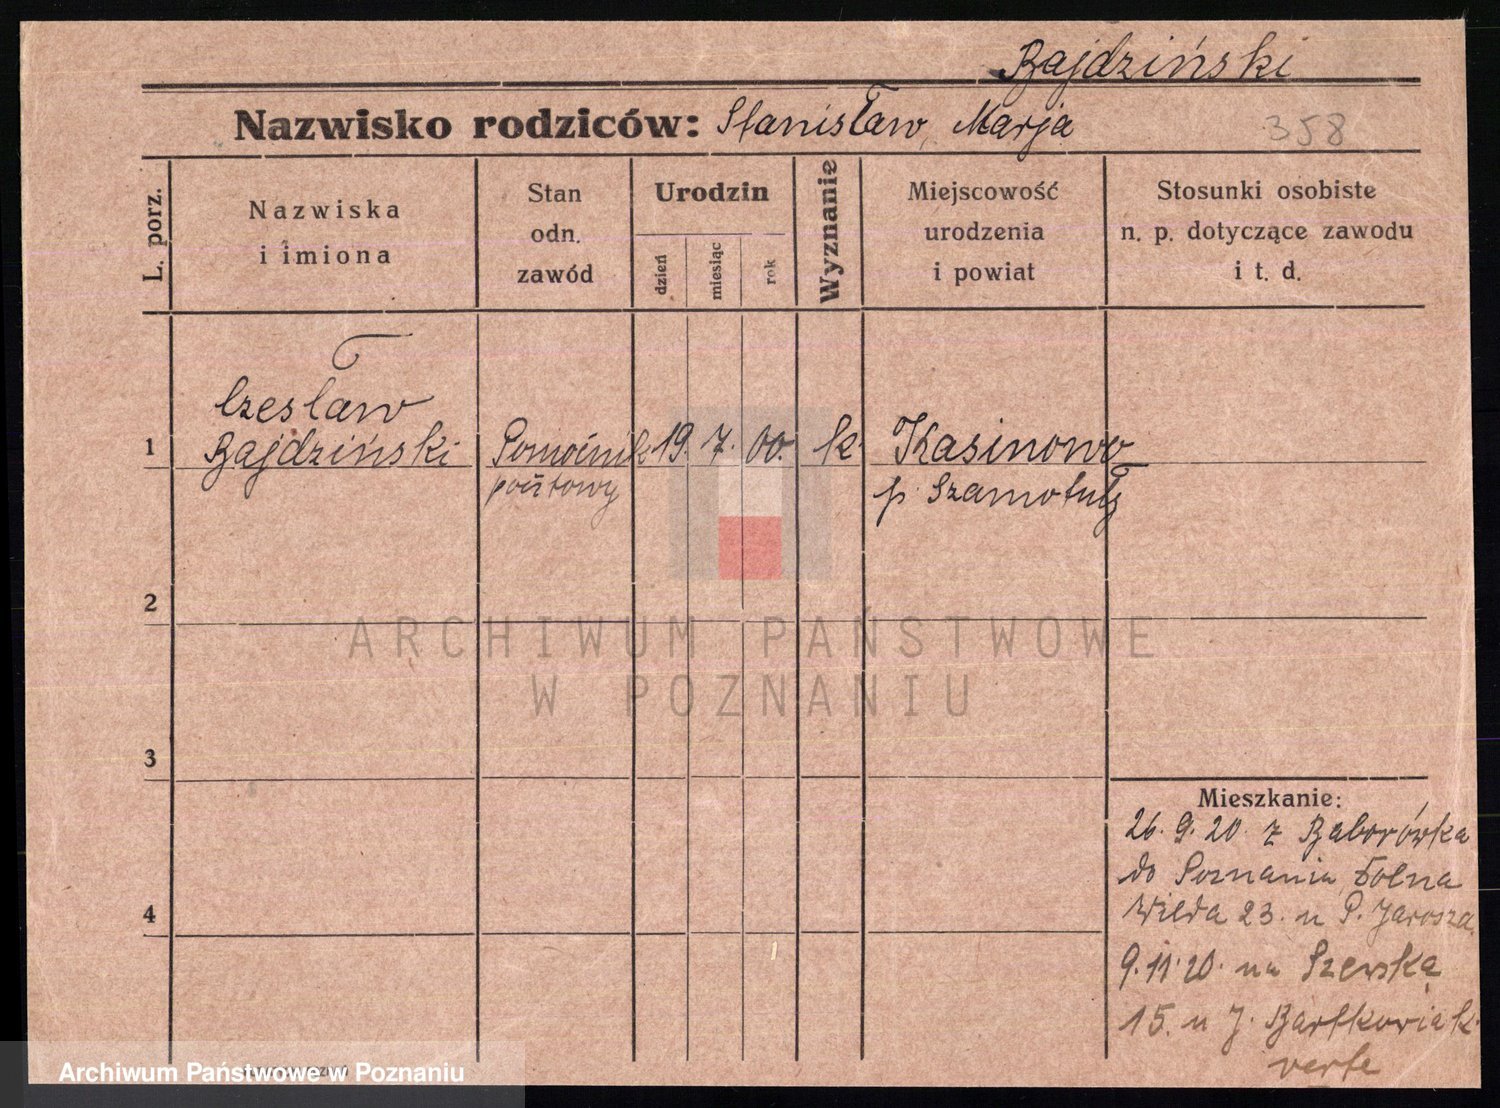 Bajdziński
Nazwisko rodziców: Stanisław, Marja
358
L. porz.
Nazwiska
i imiona
Stan
odn.
zawód
Urodzin
dzień
miesiąc
rok
Wyznanie
Miejscowość
urodzenia
i powiat
Stosunki osobiste
n. p. dotyczące zawodu
i t. d.
1
Czesław
Bajdziński
Pomocnik
pocztowy
19. 7. 00. k.
Kasinowo
p. Szamotuły
2
ARCHIWUM PAŃSTWOWE
W POZNANIU
3
4
Mieszkanie:
26. 9. 20. z Baborówka
do Poznania, Dolna
Wilda 23. u P. Jarosza.
9. 11. 20. na Szewską
15. u J. Bartkowiak
verte
Archiwum Państwowe w Poznaniu